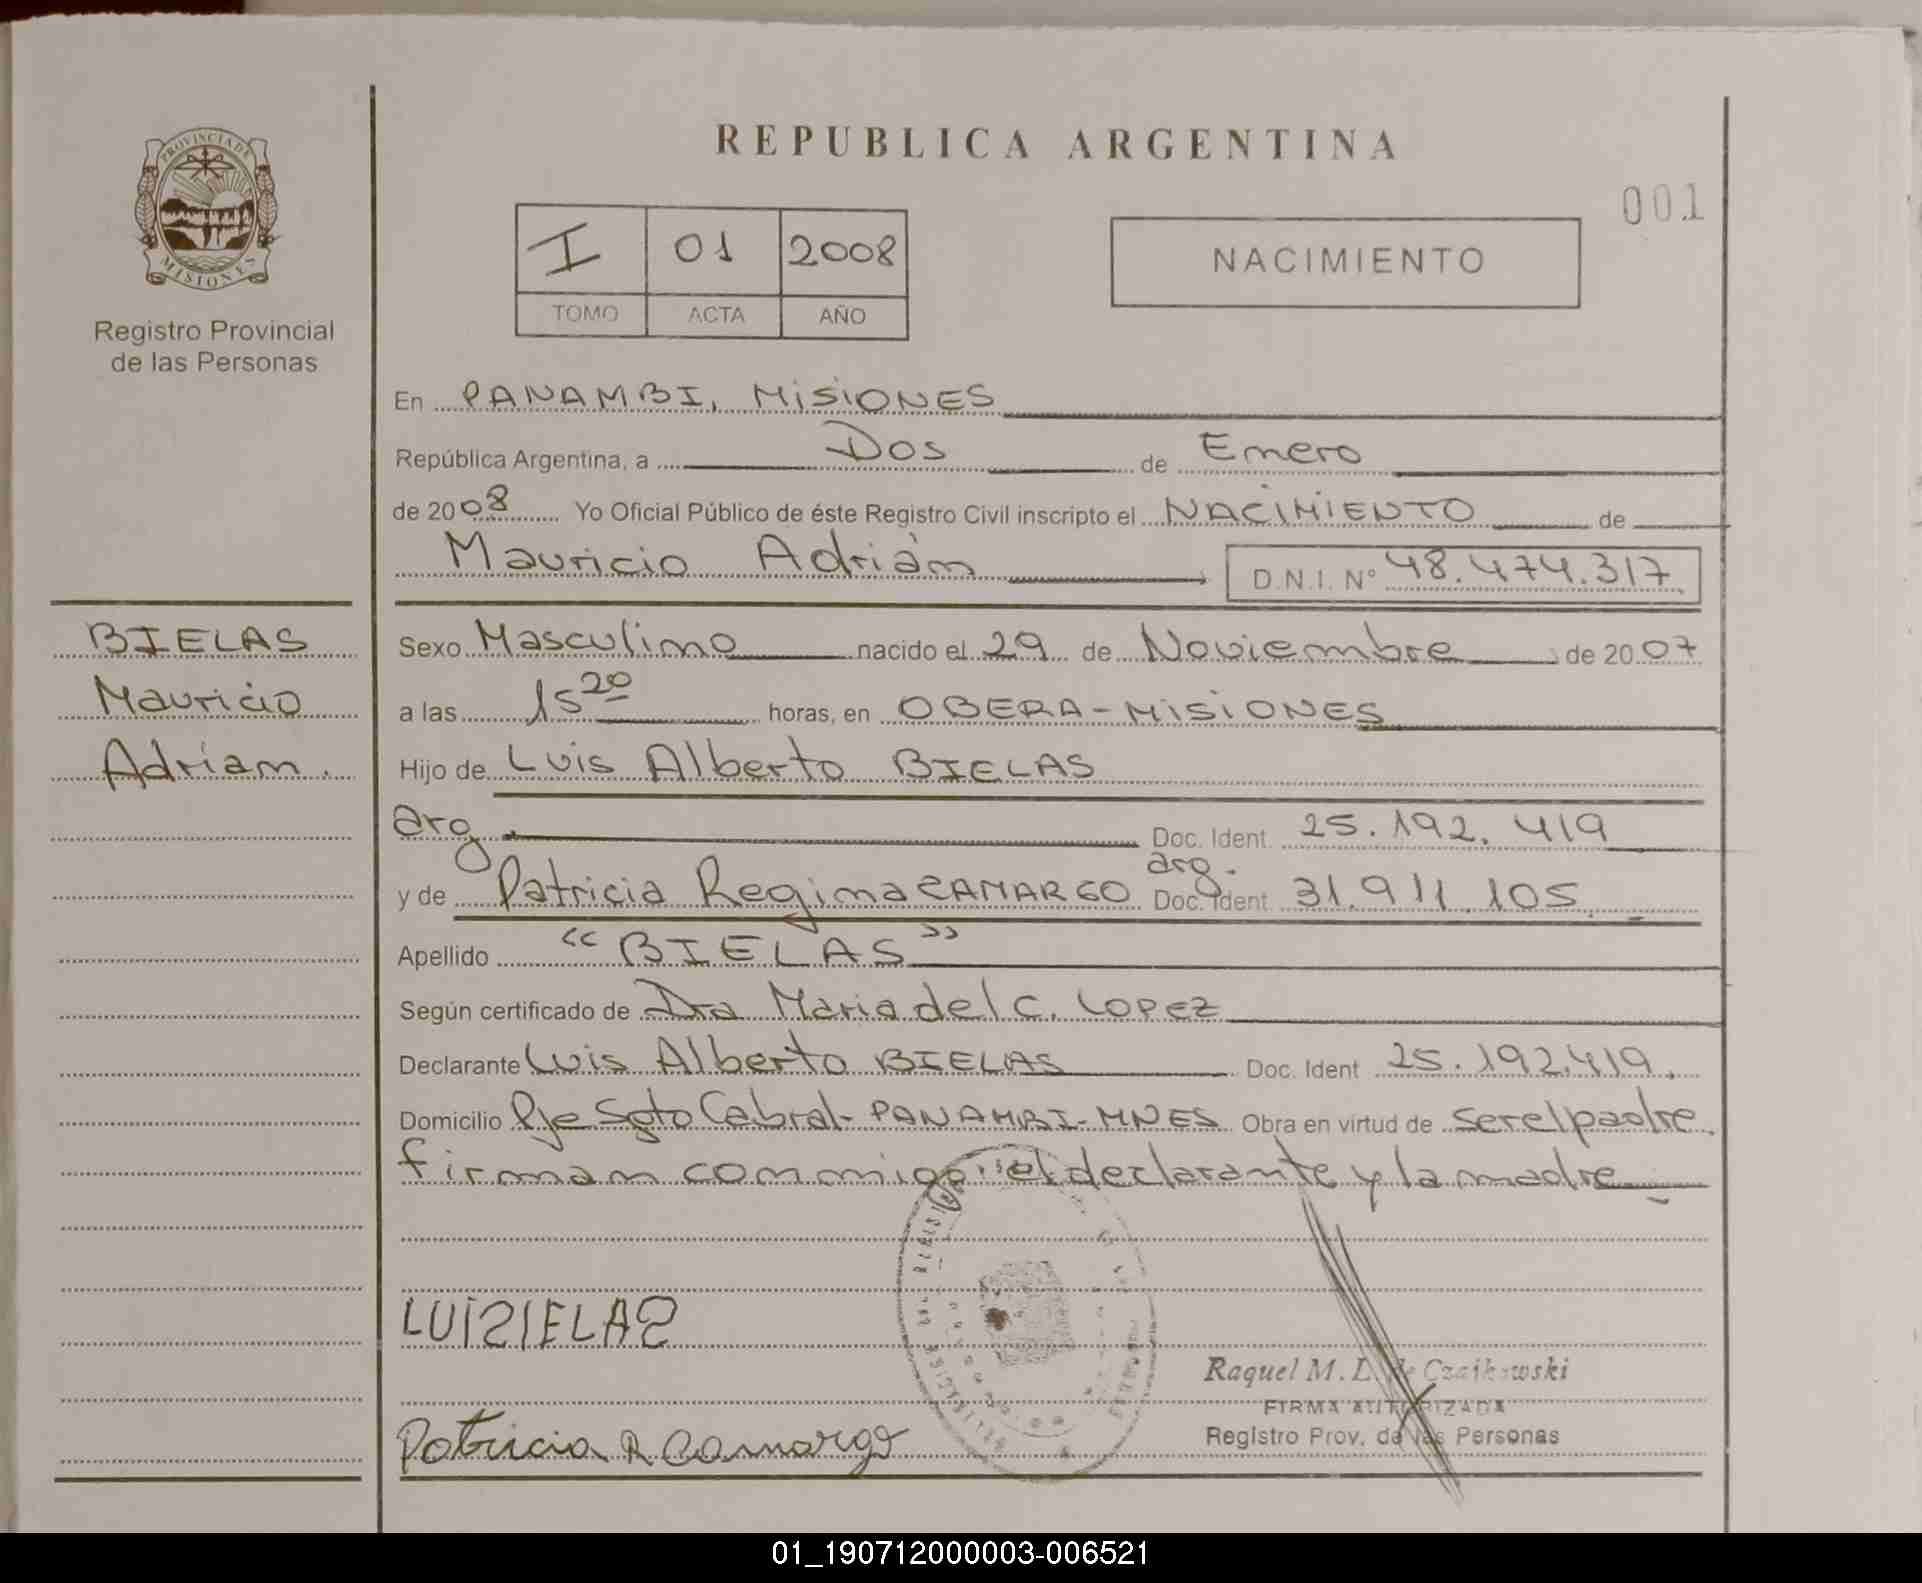 PROVINCIA DE
MISIONES
Registro Provincial
de las Personas
BIELAS
Mauricio
Adrian.
REPUBLICA ARGENTINA
001
I 01 2008
TOMO ACTA AÑO
NACIMIENTO
En PANAMBI, MISIONES
República Argentina, a Dos de Enero
de 2008 Yo Oficial Público de éste Registro Civil inscripto el NACIMIENTO de
Mauricio Adrián D.N.I. Nº 48.474.317
Sexo Masculino nacido el 29 de Noviembre de 2007
a las 15 20 horas, en OBERA - MISIONES
Hijo de Luis Alberto BIELAS
arg. Doc. Ident. 25.192.419
arg.
y de Patricia Regina CAMARGO Doc. Ident 31.911.105
Apellido "BIELAS"
Según certificado de Dra Maria del C. LOPEZ
Declarante Luis Alberto BIELAS Doc. Ident 25.192.419.
Domicilio Pje Sgto Cabral - PANAMBI - MNES Obra en virtud de ser el padre.
firman conmigo el declarante y la madre
LUISIELAS
Raquel M. L. de Czaikowski
FIRMA AUTORIZADA
Registro Prov. de las Personas
Patricia R Camargo
01_190712000003-006521